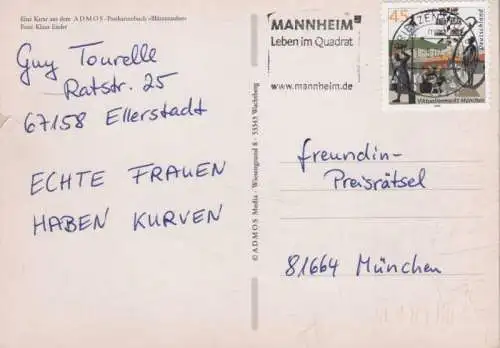 Eine Karte aus dem ADMOS-Postkartenbuch »Blütenzauber«
Foto: Klaus Ender
Guy Tourelle
Ratstr. 25
67158 Ellerstadt
ECHTE FRAUEN
HABEN KURVEN
© ADMOS Media · Wiesengrund 8 · 53343 Wachtberg
MANNHEIM²
Leben im Quadrat
www.mannheim.de
BRIEFZENTRUM
45
Deutschland
Viktualienmarkt München
freundin-
Preisrätsel
81664 München